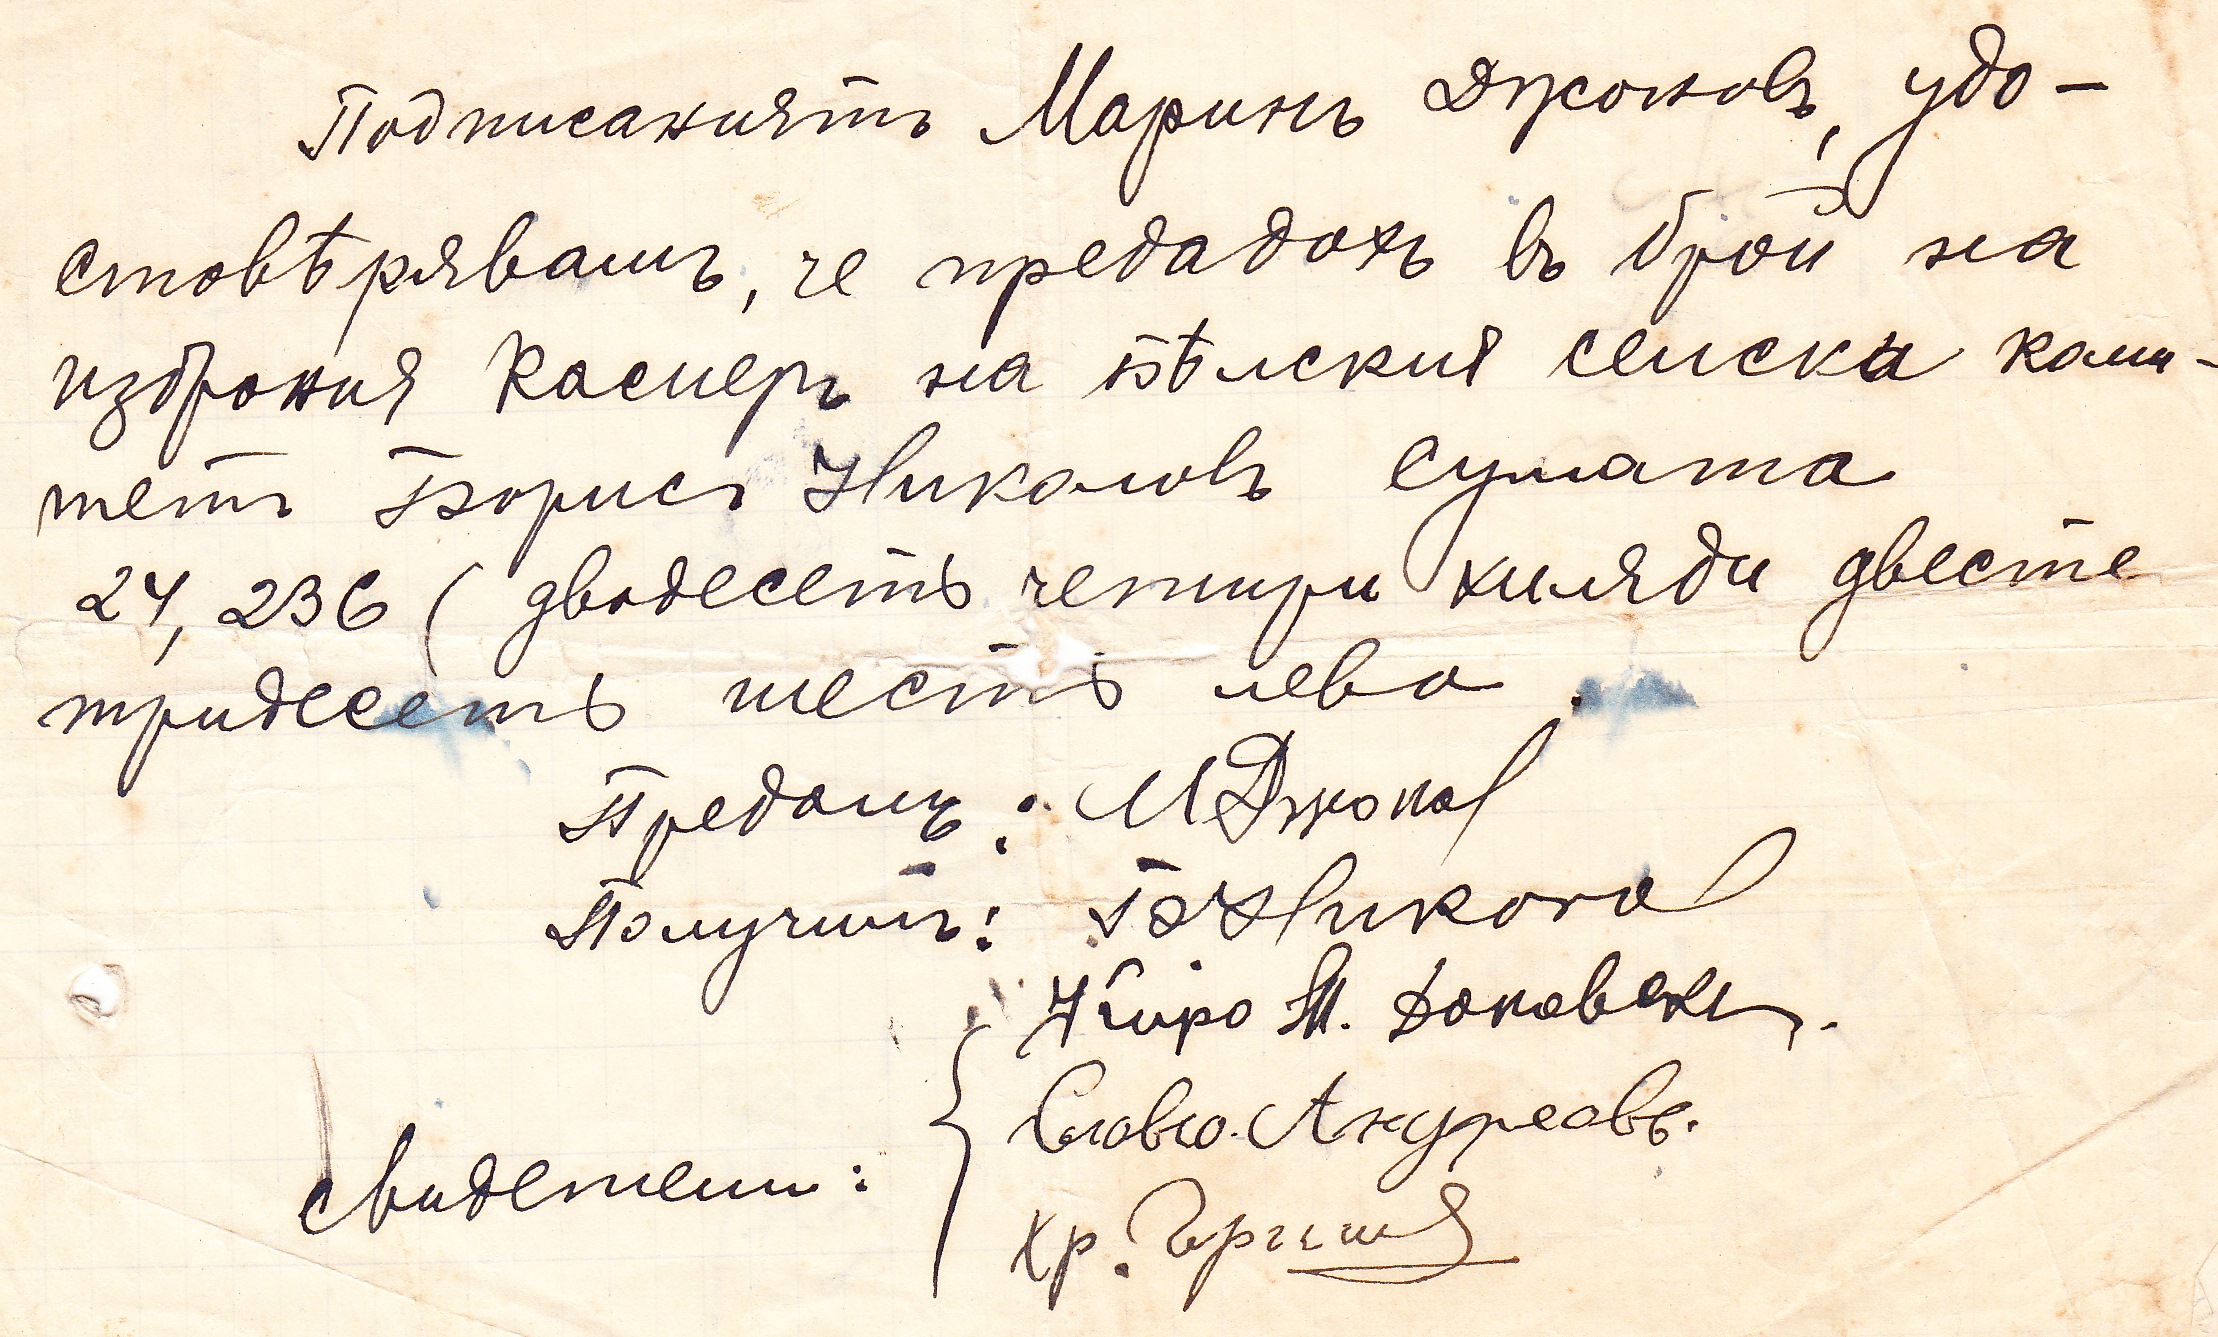 Подписаниятъ Маринъ Джоновъ, удо-
стовѣрявамъ, че предадохъ въ брой на
избрания касиеръ на Бѣлския селски коми-
тетъ Борисъ Николовъ сумата
24,236 (двадесеть четири хиляди двесте
тридесеть шесть лева.
Предалъ: МДжонов
Получилъ: Б Николов
Киро М.
Славчо Андреевъ.
свидетели:
Хр.